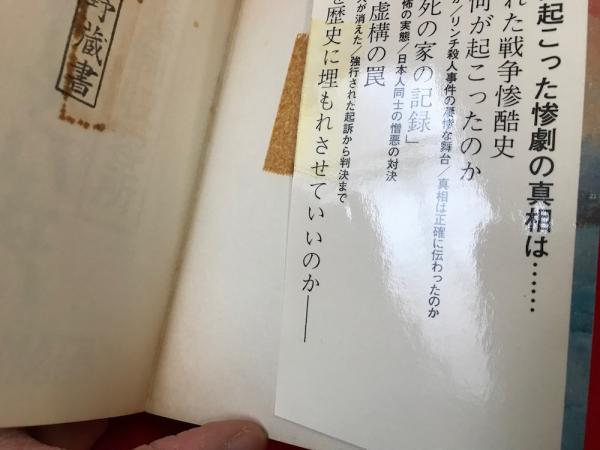 起こった惨劇の真相は……
れた戦争惨酷史
何が起こったのか
/リンチ殺人事件の凄惨な舞台/真相は正確に伝わったのか
死の家の記録」
怖の実態/日本人同士の憎悪の対決
虚構の罠
が消えた/強行された起訴から判決まで
歴史に埋もれさせていいのか――
野蔵書